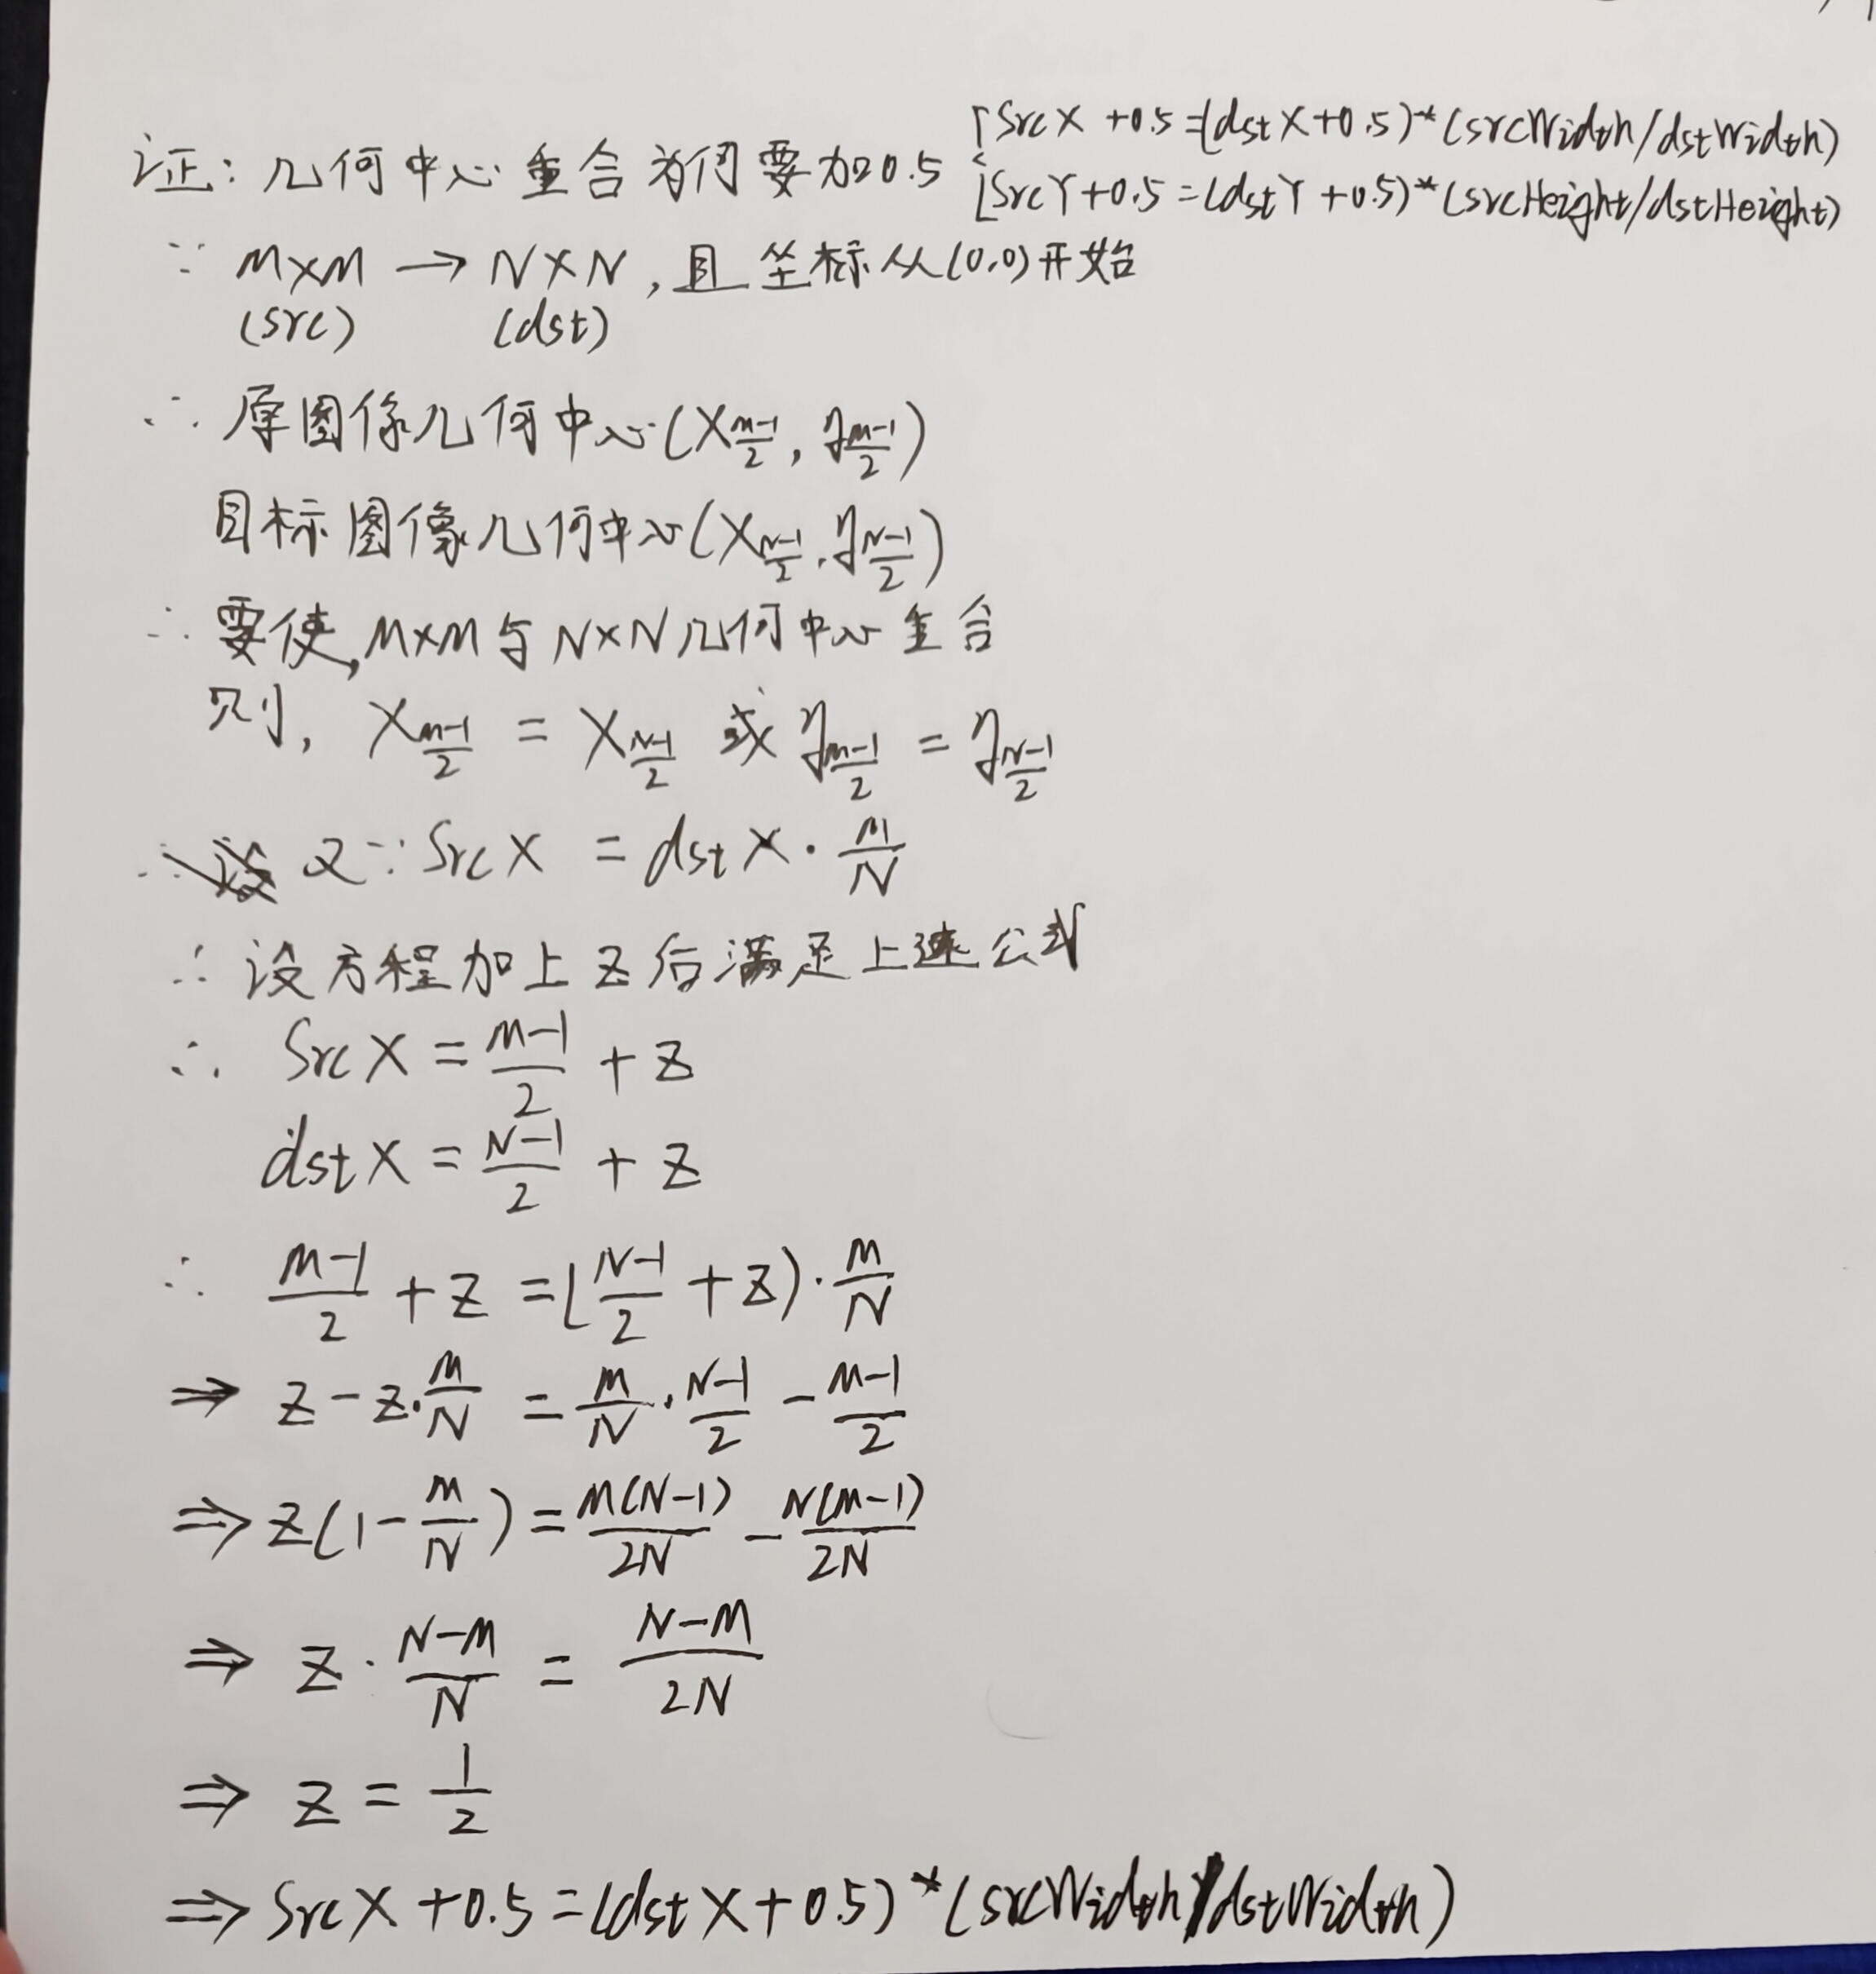 证: 几何中心重合为何要加0.5 { SrcX +0.5 =(dstX+0.5)*(srcWidth/dstWidth)
SrcY+0.5 =(dstY +0.5)*(srcHeight/dstHeight)
∵ M×M → N×N, 且坐标从(0,0)开始
(src) (dst)
∴ 原图像几何中心(X_{\frac{M-1}{2}}, y_{\frac{M-1}{2}})
目标图像几何中心(X_{\frac{N-1}{2}}, y_{\frac{N-1}{2}})
∴ 要使, M×M与N×N几何中心重合
则, X_{\frac{M-1}{2}} = X_{\frac{N-1}{2}} 或 y_{\frac{M-1}{2}} = y_{\frac{N-1}{2}}
又∵ SrcX = dstX · \frac{M}{N}
∴ 设方程加上Z后满足上述公式
∴ SrcX = \frac{M-1}{2} + Z
dstX = \frac{N-1}{2} + Z
∴ \frac{M-1}{2} + Z = (\frac{N-1}{2} + Z) · \frac{M}{N}
⇒ Z - Z·\frac{M}{N} = \frac{M}{N} · \frac{N-1}{2} - \frac{M-1}{2}
⇒ Z(1 - \frac{M}{N}) = \frac{M(N-1)}{2N} - \frac{N(M-1)}{2N}
⇒ Z · \frac{N-M}{N} = \frac{N-M}{2N}
⇒ Z = \frac{1}{2}
⇒ SrcX +0.5 =(dstX+0.5)*(srcWidth/dstWidth)